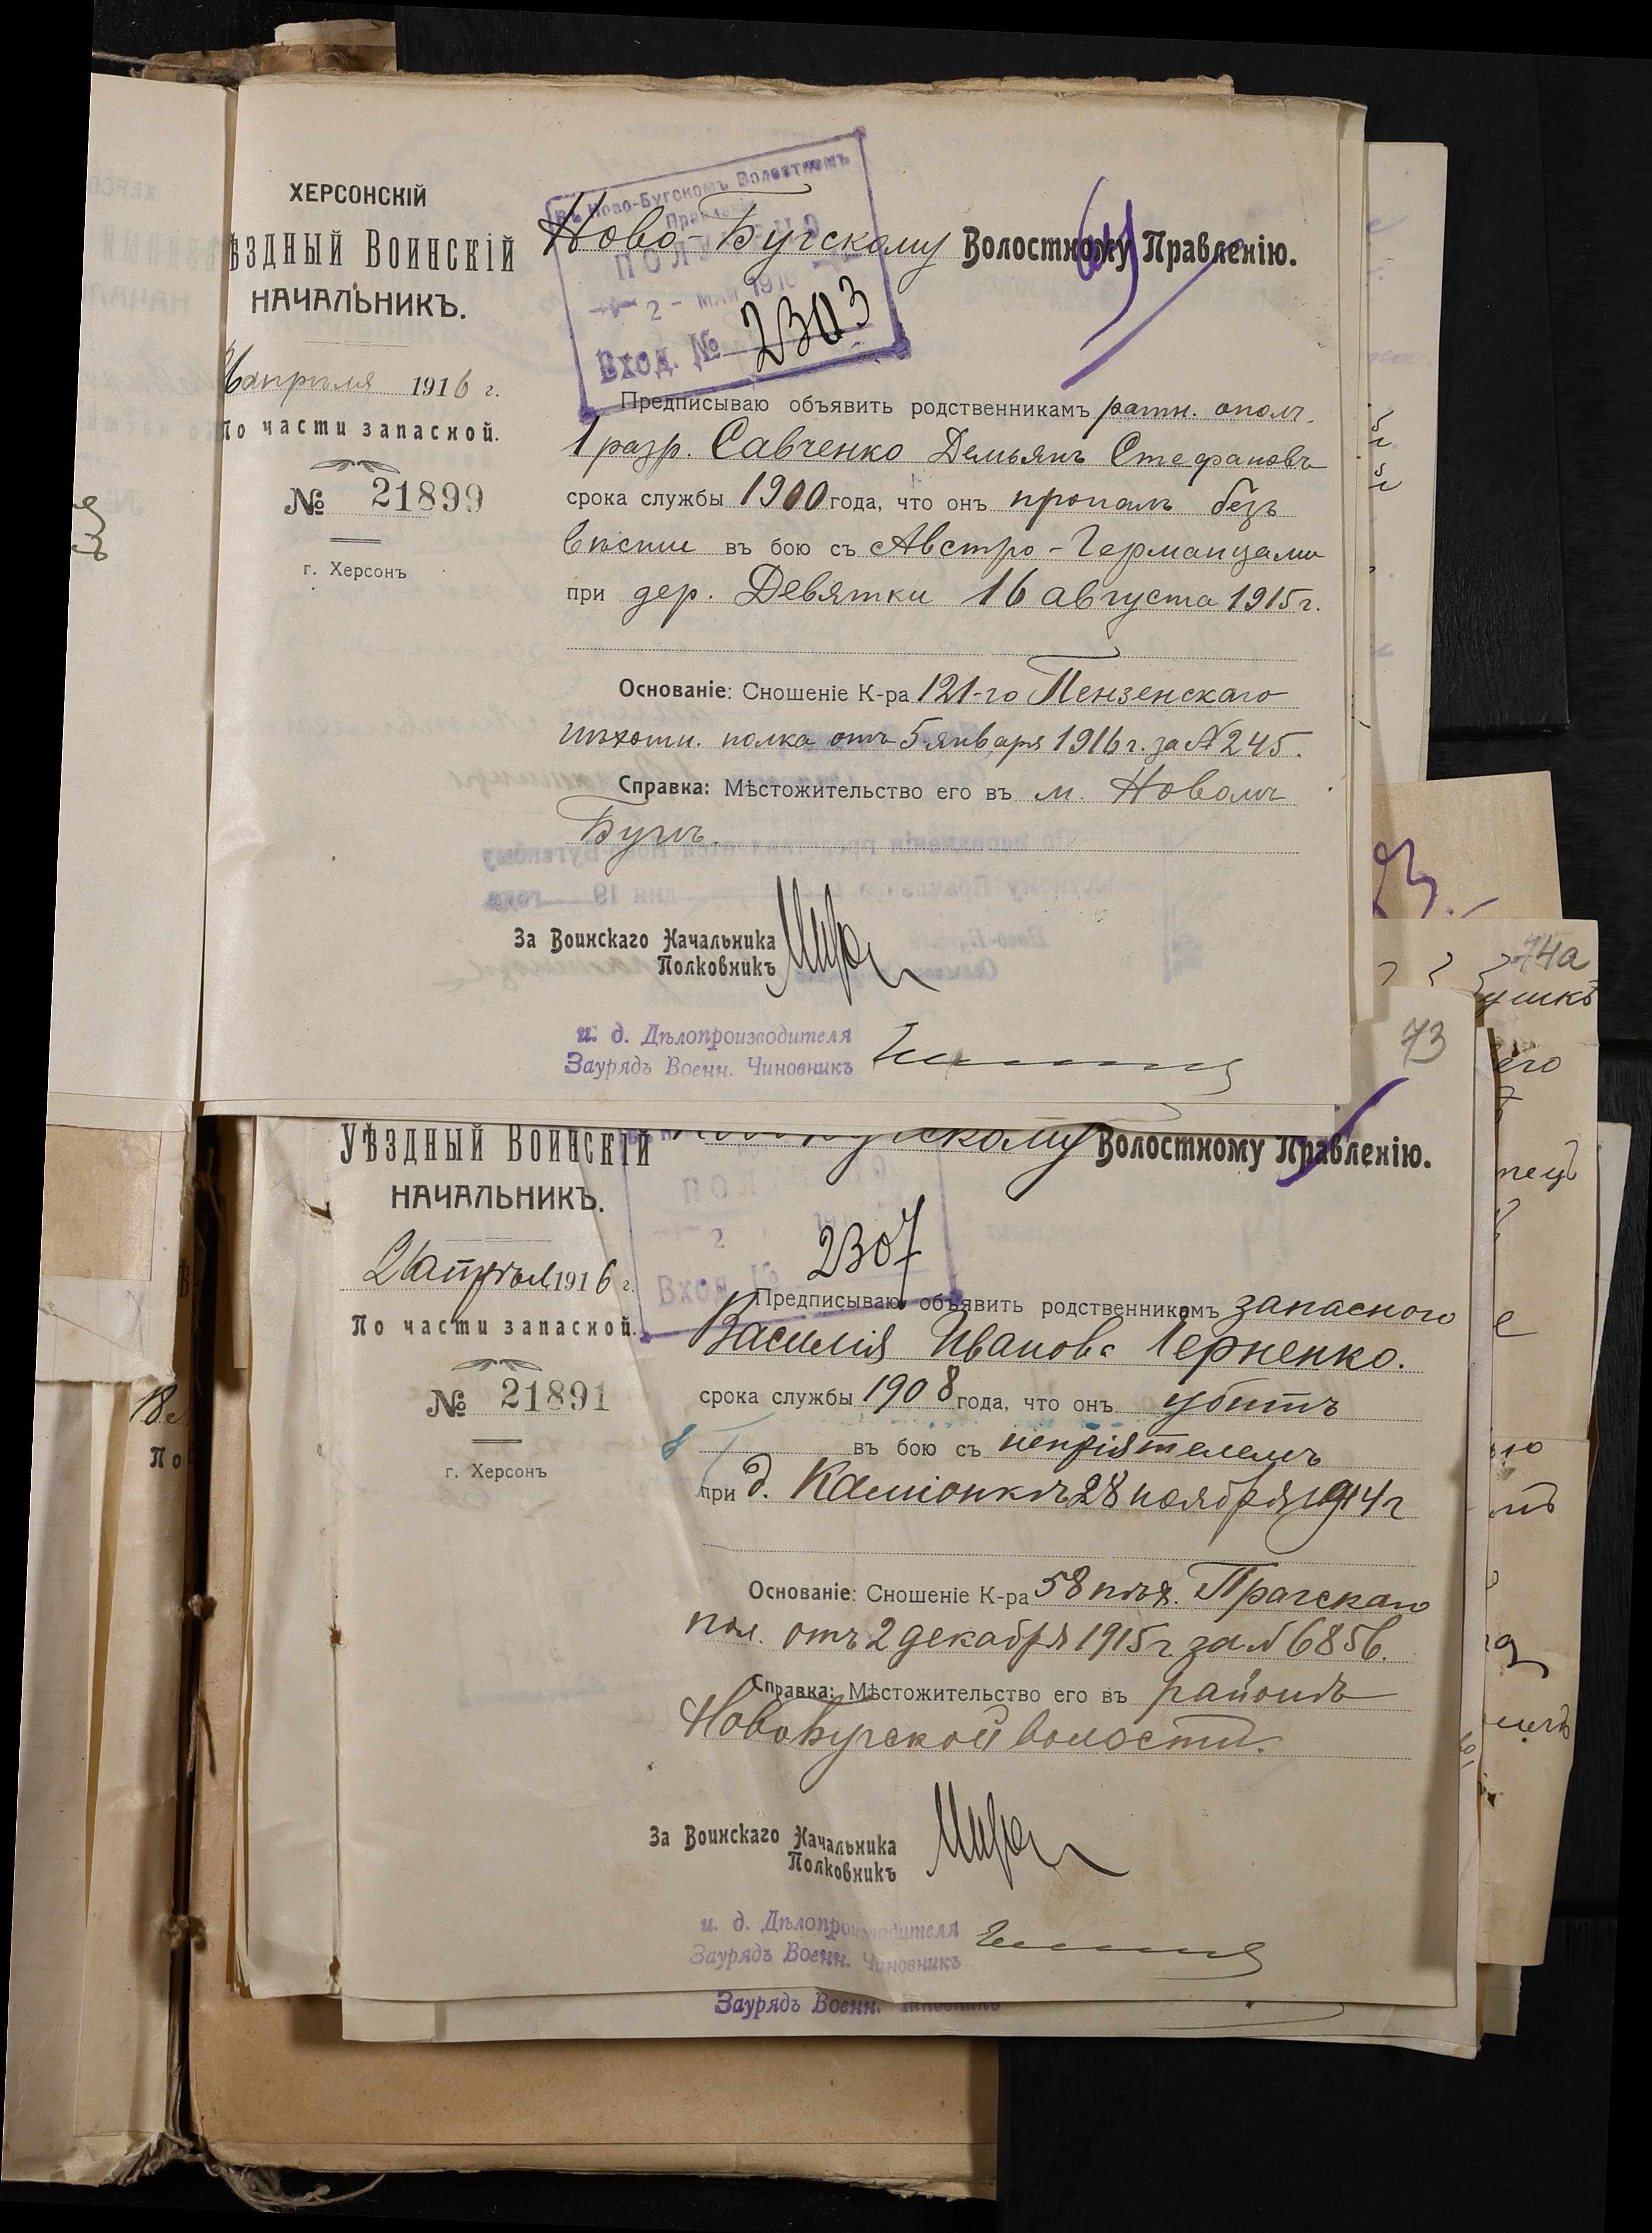 ХЕРСОНСКІЙ
ѢЗДНЫЙ ВОИНСКІЙ
НАЧАЛЬНИКЪ.
апрѣля 1916 г.
По части запасной.
№ 21899
г. Херсонъ
Въ Ново-Бугскомъ Волостномъ
Правленіи
ПОЛУЧЕНО
2 - МАЙ 1916
Вход. № 2303
Ново-Бугскому Волостному Правленію.
Предписываю объявить родственникамъ ратн. ополч.
1 разр. Савченко Демьянъ Стефановъ
срока службы 1900 года, что онъ пропалъ безъ
вѣсти въ бою съ Австро-Германцами
при дер. Девятки 16 августа 1915 г.
Основаніе: Сношеніе К-ра 121-го Пензенскаго
пѣхотн. полка отъ 5 января 1916 г. за № 245.
Справка: Мѣстожительство его въ м. Новомъ
Бугѣ.
За Воинскаго Начальника
Полковникъ
и. д. Дѣлопроизводителя
Заурядъ Военн. Чиновникъ
74а
73
УѢЗДНЫЙ ВОИНСКІЙ
НАЧАЛЬНИКЪ.
26 апрѣл 1916 г.
По части запасной.
№ 21891
г. Херсонъ
Волостному Правленію.
2
Вход. № 2307
Предписываю объявить родственникамъ запасного
Василія Иванова Черненко.
срока службы 1908 года, что онъ убитъ
въ бою съ непріятелемъ
при д. Каміонкѣ 28 ноября 1914 г
Основаніе: Сношеніе К-ра 58 пѣх. Прагскаго
пол. отъ 2 декабря 1915 г. за № 6856.
Справка: Мѣстожительство его въ районѣ
НовоБугской волости.
За Воинскаго Начальника
Полковникъ
и. д. Дѣлопроизводителя
Заурядъ Военн. Чиновникъ
Заурядъ Военн. Чиновникъ